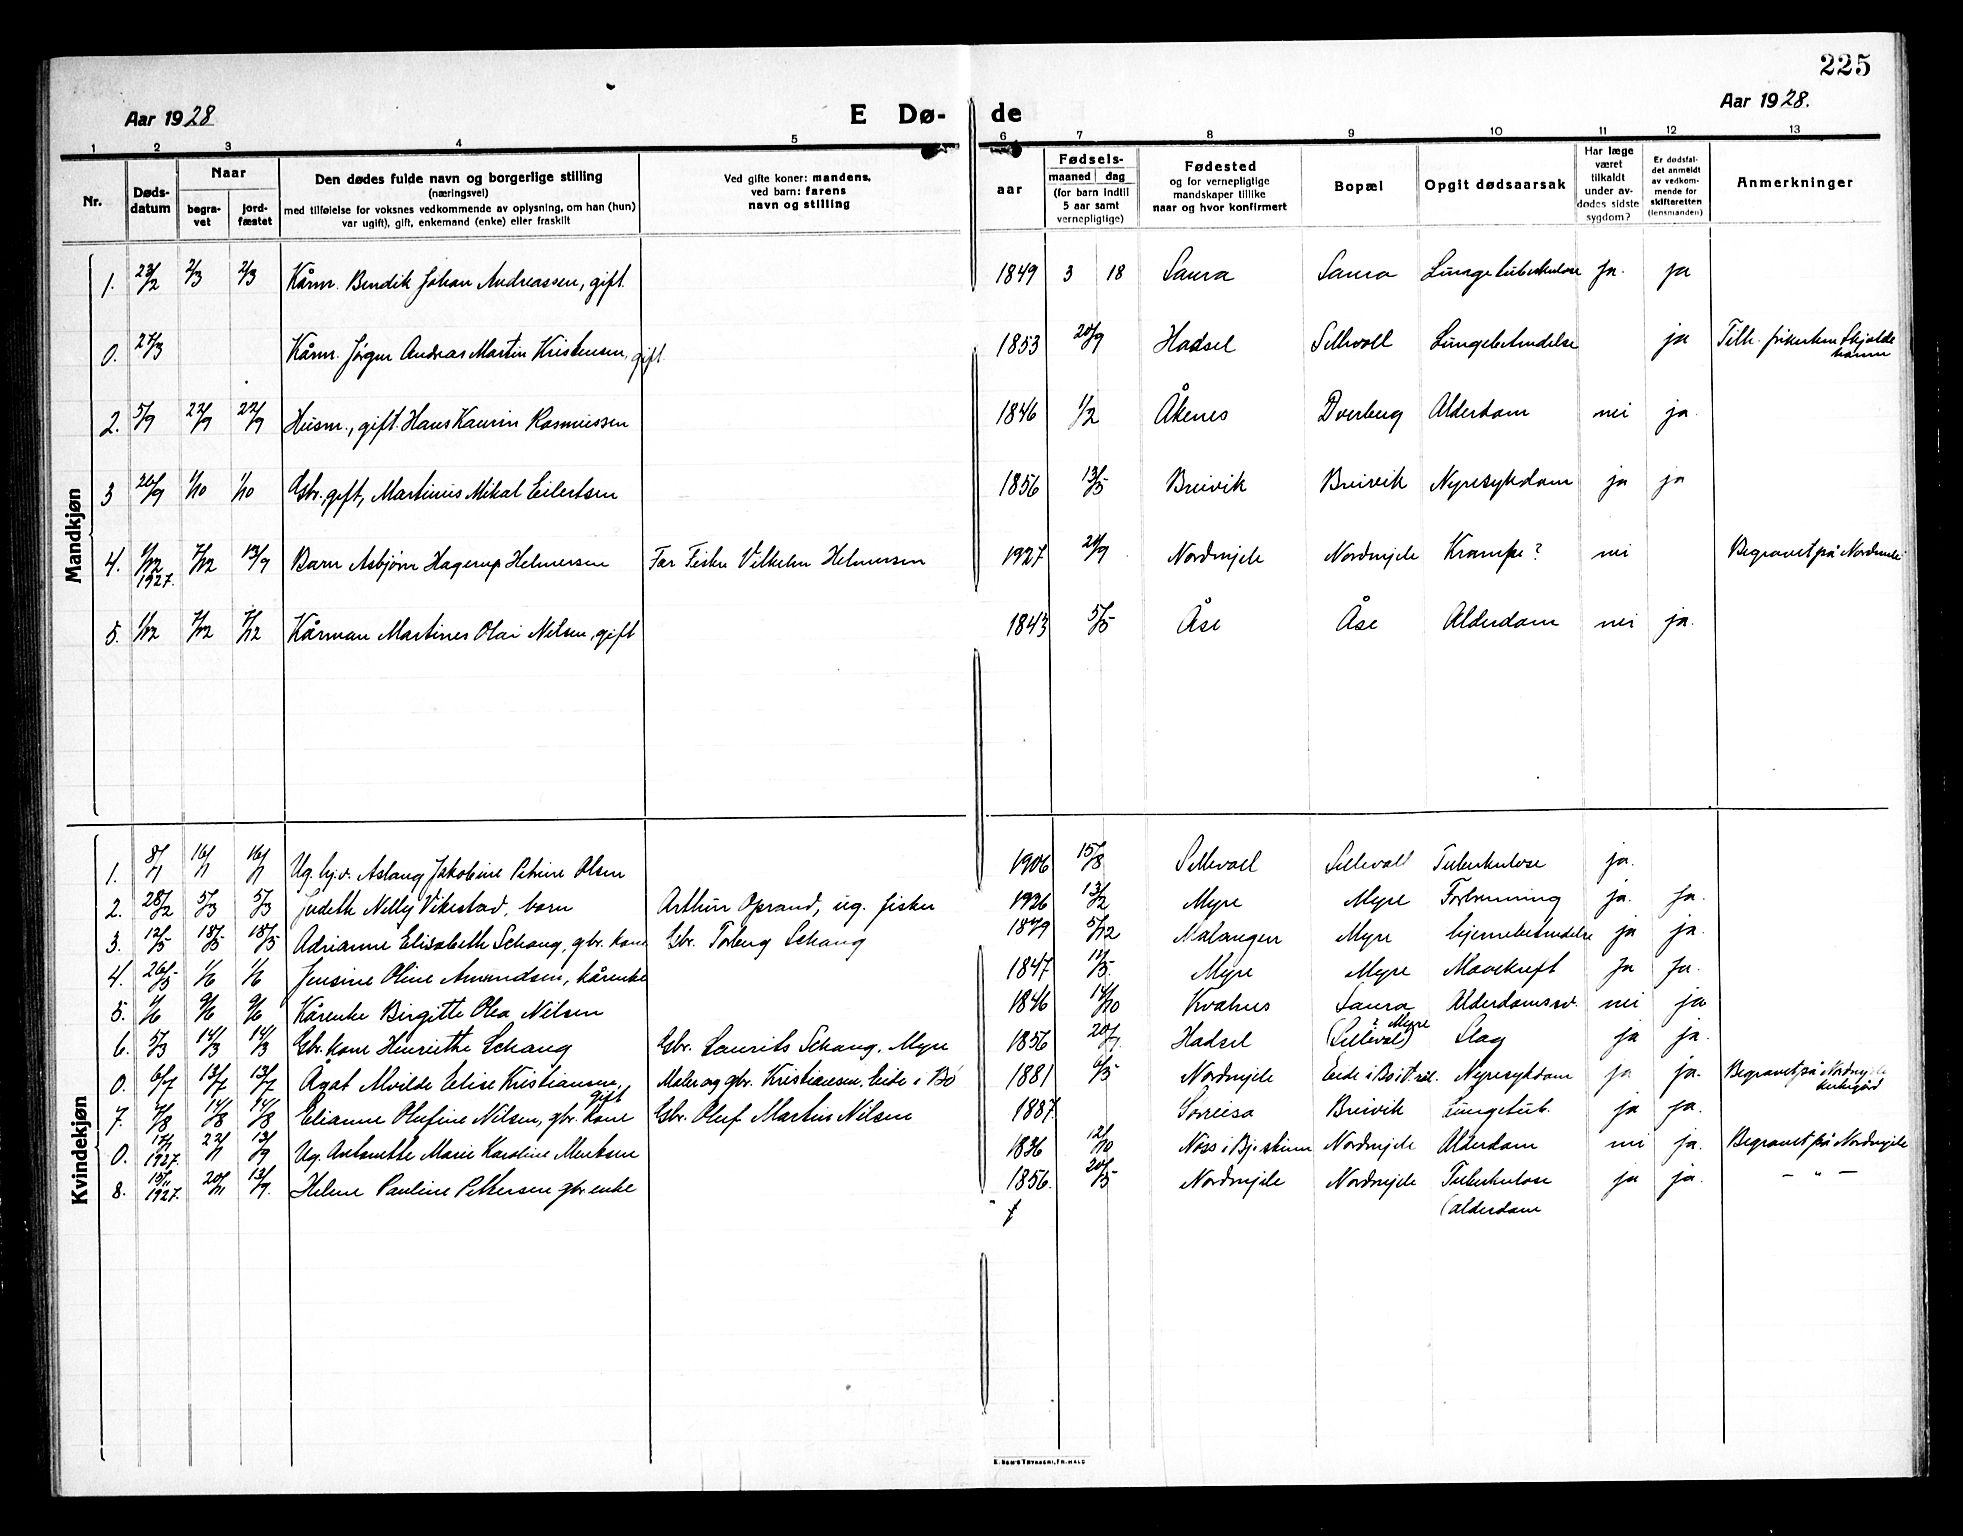 225
Aar 1928
E Dø-
de
Aar 1928.
1 2 3 4 5 6 7 8 9 10 11 12 13
Nr.
Døds-
datum
Naar
begra-
vet
jord-
fæstet
Den dødes fulde navn og borgerlige stilling
(næringsvei)
med tilføielse for voksnes vedkommende av oplysning, om han (hun)
var ugift), gift, enkemand (enke) eller fraskilt
Ved gifte koner: mandens,
ved barn: farens
navn og stilling
aar
Fødsels-
maaned dag
(for barn indtil
5 aar samt
vernepligtige)
Fødested
og for vernepligtige
mandskaper tillike
naar og hvor konfirmert
Bopæl
Opgit dødsaarsak
Har læge
været
tilkaldt
under av-
dødes sidste
sygdom?
Er dødsfal-
det anmeldt
av vedkom-
mende for
skifteretten
(lensmanden)
Anmerkninger
Mandkjøn
1. 23/2 2/3 2/3 Kårm. Bendik Johan Andreassen, gift. 1849 3 18 Saura Saura Lungetuberkulose ja. ja
0. 27/3 Kårm. Jørgen Andreas Martin Kristensen, gift. 1853 20/9 Hadsel Sellevoll Lungebetændelse ja Tilh. frikirken Skjolde
hamn
2. 5/9 22/9 22/9 Husm., gift. Hans Kaurin Rasmussen 1846 1/2 Åkenes Dverberg Alderdom nei ja.
3 26/9 1/10 1/10 Gbr. gift, Martinus Mikal Eilertsen 1856 13/5 Breivik Breivik Nyresykdom ja ja
4. 1/12 1927. 7/12 13/9 Barn Asbjørn Hagerup Helmersen Far Fisker Vilhelm Helmersen 1927 24/9 Nordmjele Nordmjele Krampe? nei Begravet på Nordmele
5. 1/12 7/12 7/12 Kårman Martines Olai Nilsen, gift 1843 5/5 Åse Åse Alderdom nei ja.
Kvindekjøn
1. 8/1 16/1 16/1 Ug. hj.v. Aslaug Jakobine Petrine Olsen 1906 15/8 Sellevoll Sellevoll Tuberkulose ja.
2. 28/2 5/3 5/3 Judith Nelly Vikestad, barn Arthur Oprand, ug. fisker 1926 13/2 Myre Myre Forbrenning ja. ja.
3. 12/5 18/5 18/5 Adrianne Elisabeth Schang, gbr. kone Gbr. Torberg Schang 1849 5/12 Malangen Myre hjernebetændelse ja ja.
4. 26/5 1/6 1/6 Jensine Oline Amundsen, kårenke 1847 /5. Myre Myre Mavekreft ja ja.
5. 4/6 9/6 9/6 Kårenke Birgitte Olea Nilsen 1846 14/10 Kvalnes Saura Alderdomssv. nei ja
6. 5/3 14/3 14/3 Gbr. kone Henriethe Schang Gbr. Laurits Schang, Myre 1856 20/7. Hadsel (Sellevol) ? Myre Slag ja ja.
0. 6/7 13/7 13/7 Ågot Mvilde Elise Kristiansen, gift Maler og gbr. Kristiansen, Eide i Bø 1881 6/5 Nordmjele Eide i Bø i V.rål. Nyresykdom ja ja. Begravet på Nordmjele
kirkegård
7. 7/8 14/8 14/8 Elianne Olufine Nilsen, gbr. kone Gbr. Oluf Martin Nilsen 1887. Sørreisa Breivik Lungetub. ja ja.
0. 17/1 1927. 22/1 13/9 Ug. Antonette Marie Karoline Mentsen 1836 12/10 Næss i Bjerskinn Nordmjele Alderdom nei ja. Begravet på Nordmjele
8. 15/11 1927. 20/11 13/9. Helene Pauline Pettersen gbr. enke 1856. 20/5 Nordmjele Nordmjele Tuberkulose ja ja. — " —
(alderdom